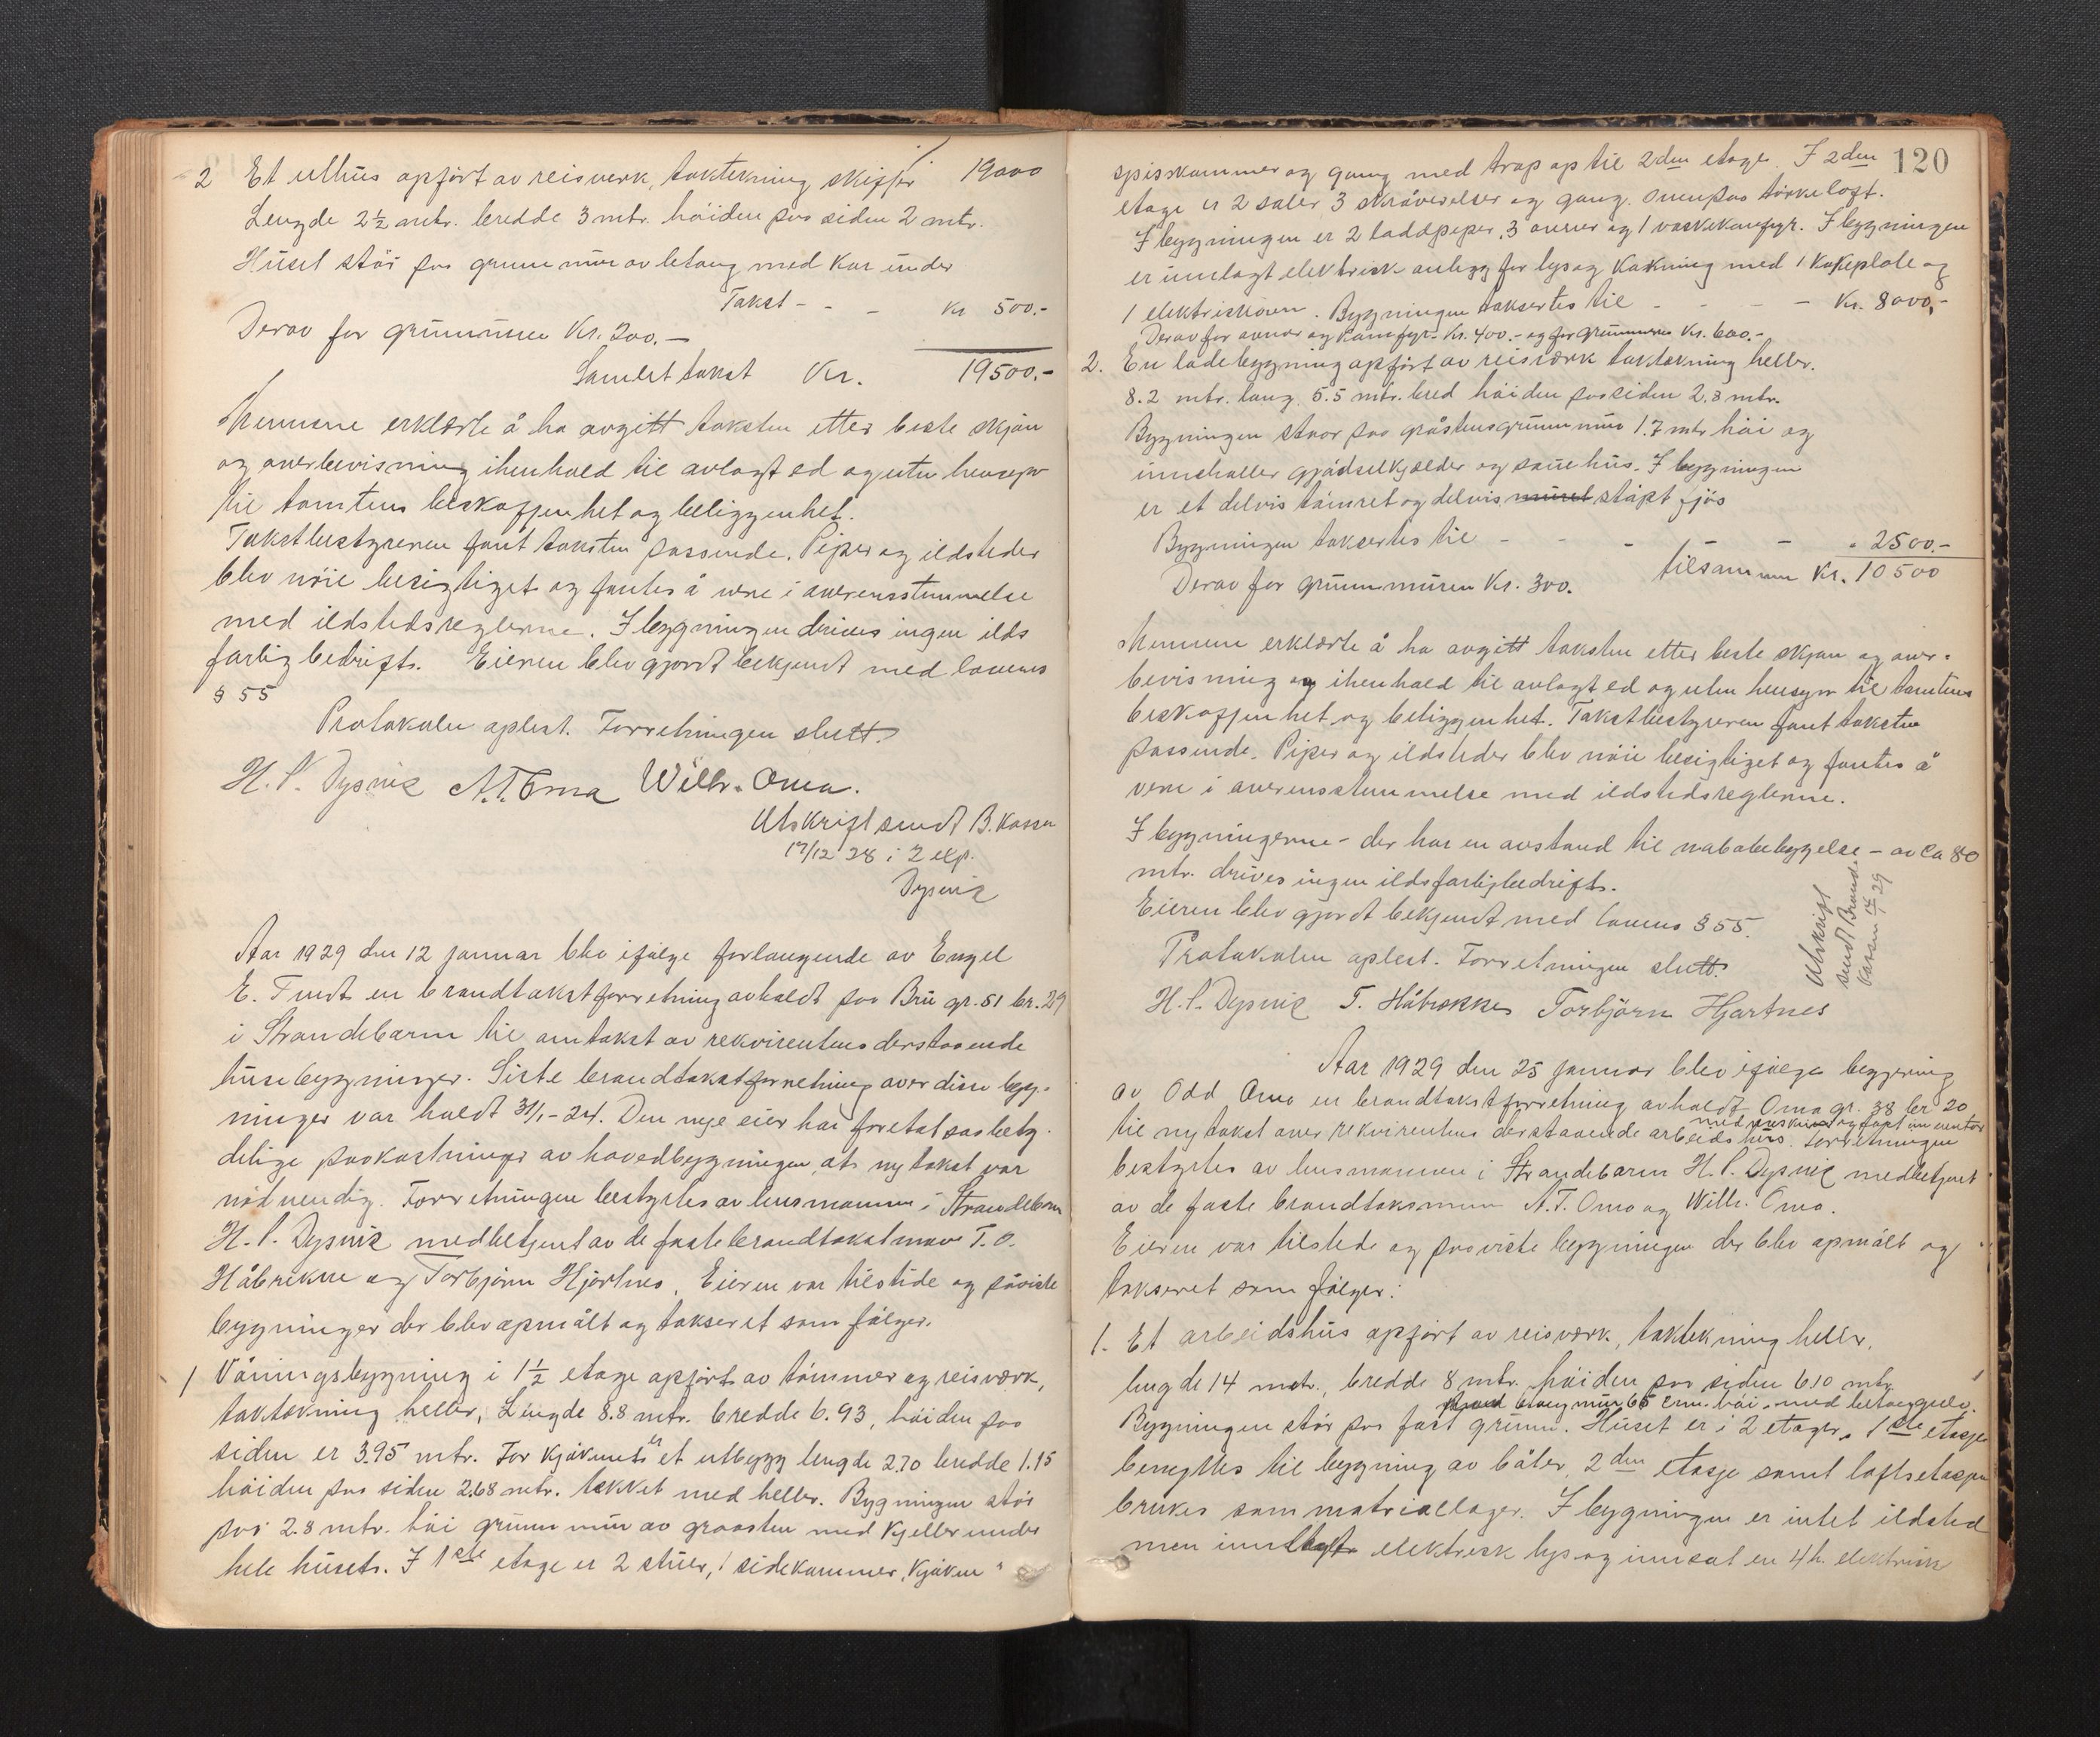 2 Et uthus opført av reisverk, taktekning skiffer 19000
Lengde 2½ mtr. bredde 3 mtr. høiden paa siden 2 mtr.
Huset står paa grunnmur av betong med Kar under
Takst - - - Kr 500.-
Derav for grunnmuren Kr. 200.-
Samlet takst Kr. 19500.-
Mennene erklærte å ha avgitt taksten etter beste skjøn
og overbevisning i henhold til avlagt ed og uten hensyn
til tomtens beskaffenhet og beliggenhet.
Takstbestyreren fant taksten passende. Piper og ildsteder
blev nøie besigtiget og fantes å være i overensstemmelse
med ildstedsreglerne. I bygningen drives ingen ilds
farlig bedrift. Eieren blev gjordt bekjendt med lovens
§ 55
Protokolen oplest. Forretningen slutt.
H. P. Dysvik A. T. Oma Wilh. Oma.
Utskrift sendt B. Kassen
17/12 28 i 2 exp.
Dysvik
Aar 1929 den 12 januar blev ifølge forlangende av Engel
E. Tvedt en brandtakstforretning avholdt paa Bru gr. 51 br. 29
i Strandebarm til omtakst av rekvirentens derstaaende
husebygninger. Siste brandtakstforretning over disse byg-
ninger var holdt 31/1-24. Den nye eier har foretat saa bety-
delige paakostninger av hovedbygningen, at ny takst var
nødvendig. Forretningen bestyrtes av lensmannen i Strandebarm
H. P. Dysvik medbetjent av de faste brandtakstmenn T. O.
Håbrekke og Torbjørn Hjartnes. Eieren var tilstede og påviste
bygninger der blev opmålt og taksert som følger.
1 Våningsbygning i 1½ etage opført av tømmer og reisværk,
taktekning heller, Lengde 8.8 mtr. bredde 6.93, høiden paa
siden er 3.95 mtr. For kjøkenet er et utbygg lengde 2.70 bredde 1.15
høiden paa siden 2.68 mtr. tekket med heller. Bygningen står
paa 2.8 mtr. høi grunnmur av graasten med Kjeller under
hele huset. I 1ste etage er 2 stuer, 1 sidekammer, Kjøken
120
spisskammer og gang med trap op til 2den etage. I 2den
etage er 2 saler 3 skråværelser og gang. Ovenpaa tørkeloft.
I bygningen er 2 loddpiper, 3 ovner og 1 vaskekomfyr. I bygningen
er innlagt elektrisk anlegg for lys og Kokning med 1 Kokeplate og
1 elektriskovn. Bygningen takseres til - - - - Kr. 8000,-
Derav for ovner og Komfyr Kr. 400.- og for grunnmuren Kr. 600.-
2. En ladebygning opført av reisværk taktekning heller.
8.2 mtr. lang 5.5 mtr. bred høiden paa siden 2.8 mtr.
Bygningen staar paa gråstensgrunnmur 1.7 mtr høi og
inneholler gjødselkjelder og sauehus. I bygningen
er et delvis tømret og delvis muret støpt fjøs
Bygningen takseres til - - - - " 2500.-
Derav for grunnmuren Kr. 300. tilsammen Kr. 10500
Mennene erklærte å ha avgitt taksten etter beste skjøn og over-
bevisning og i henhold til avlagt ed og uten hensyn til tomtens
beskaffenhet og beliggenhet. Takstbestyreren fant taksten
passende. Piper og ildsteder blev nøie besigtiget og fantes å
være i overensstemmelse med ildstedsreglerne.
I bygningerne - der har en avstand til nabobebyggelse - av Ca 80
mtr. drives ingen ildsfarlig bedrift.
Eieren blev gjordt bekjendt med lovens § 55.
Protokolen oplest. Forretningen slutt.
Utskrift
sendt Brand-
kassen 17/1 29
H. P. Dysvik T. Håbrekke Torbjörn Hjartnes
Aar 1929 den 25 januar blev ifølge begjæring
av Odd Oma en brandtakstforretning avholdt Oma gr. 38 br 20
til ny takst over rekvirentens derstaaende arbeidshus med maskiner og fast inventar. Forretningen
bestyrtes av lensmannen i Strandebarm H. P. Dysvik medbetjent
av de faste brandtaksmenn A. T. Oma og Wilh. Oma.
Eieren var tilstede og paaviste bygningen der blev opmålt og
takseret som følger:
1. Et arbeidshus opført av reisværk, taktekning heller,
lengde 14 mtr., bredde 8 mtr. høiden paa siden 6.10 mtr.
betong mur 65 cm. høi, med betonggulv.
Bygningen står paa fast grunn. Huset er i 2 etager. 1ste etasje
benyttes til bygning av båter, 2den etasje samt loftsetasjen
brukes som materiallager. I bygningen er intet ildsted
men innlagt elektrisk lys og innsat en 4 h. elektrisk